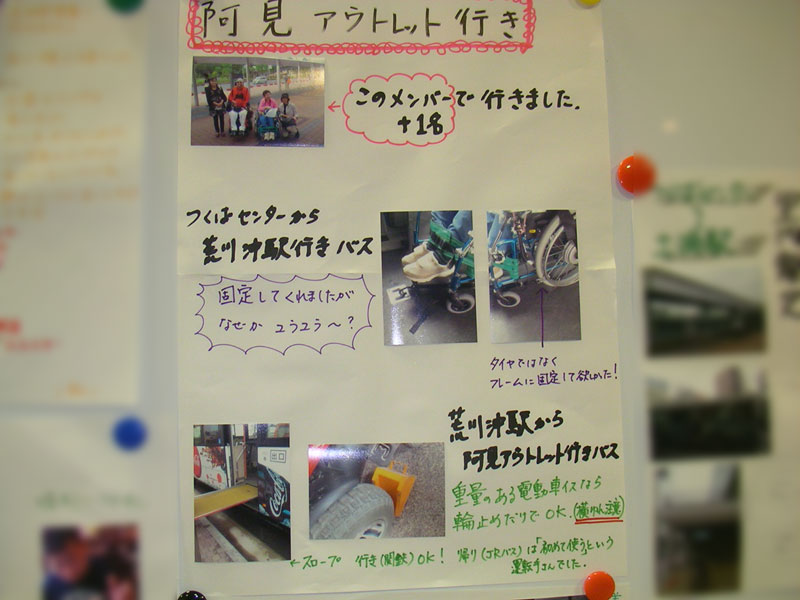 阿見アウトレット行き
このメンバーで行きました。
+1名
つくばセンターから
荒川沖駅行きバス
固定してくれましたが
なぜか ユラユラ〜?
タイヤではなく
フレームに固定して欲しかった!
荒川沖駅から
阿見アウトレット行きバス
重量のある電動車イスなら
輪止めだけでOK.
出口
Coca
←スロープ 行き(関鉄)OK! 帰り(JRバス)は「初めて使う」という
運転手さんでした。